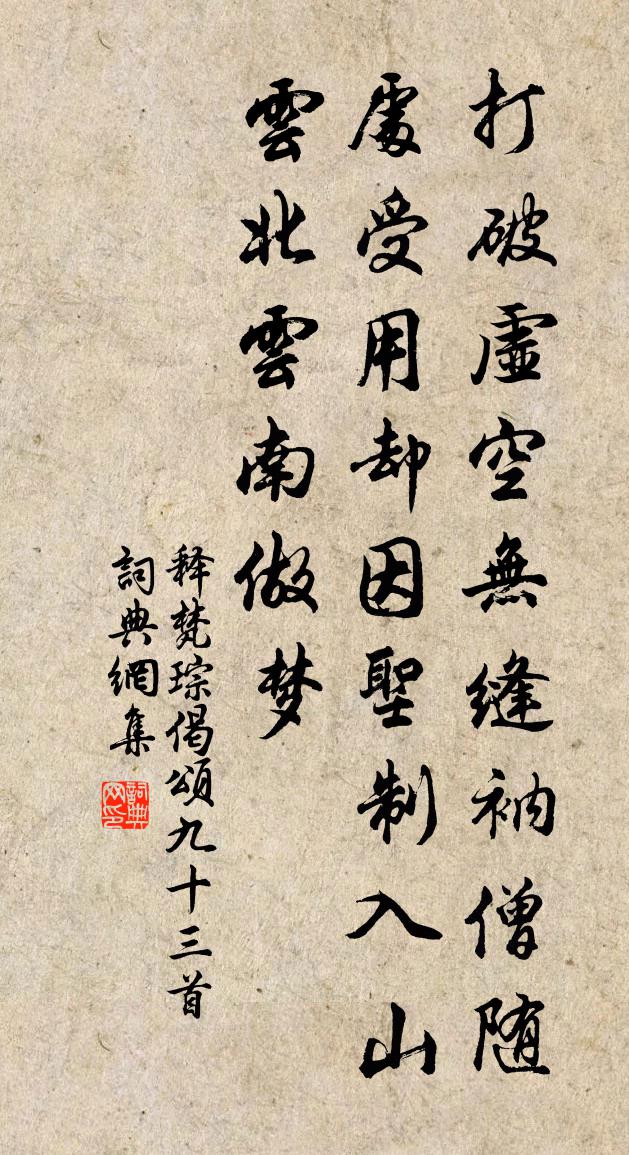 打破虛空無縫衲僧随
處受用却因聖制入山
雲北雲南做梦
释梵琮偈頌九十三首
詞典網集
詞典网印